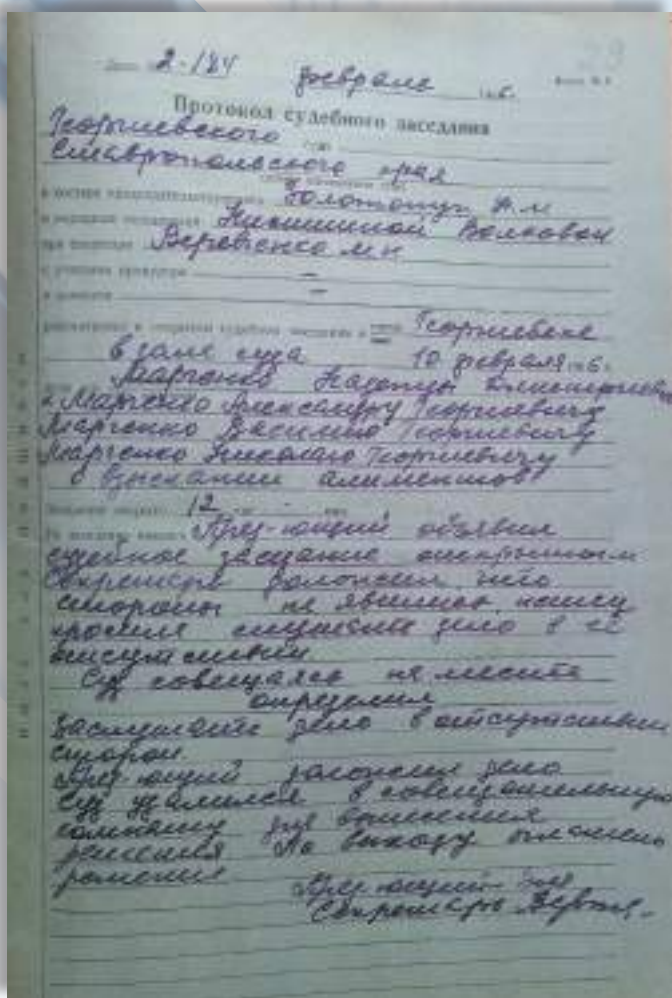 29
Дело 2-184 февраль
Протокол судебного заседания
Георгиевского суд
Ставропольского края
в составе председательствующего Золототуч А.М
и народных заседателей Никишиной Волковой
при секретаре Веревченко М.Н
с участием прокурора —
и адвоката —
рассмотрел в открытом судебном заседании в Георгиевске
в зале суда 10 февраля
Марченко Надежды
к Марченко Александру Георгиевичу
Марченко Василию Георгиевичу
Марченко Николаю Георгиевичу
о взыскании алиментов
12
Пред-ющий объявил
судебное заседание открытым
Секретарь доложил что
стороны не явились, истец
просила слушать дело в её
отсутствии
Суд совещаясь на месте
определил
Заслушать дело в отсутствии
сторон.
Пред-ющий доложил дело
Суд удалился в совещательную
комнату для вынесения
решения По выходу оглашено
решение
Пред-ющий
Секретарь